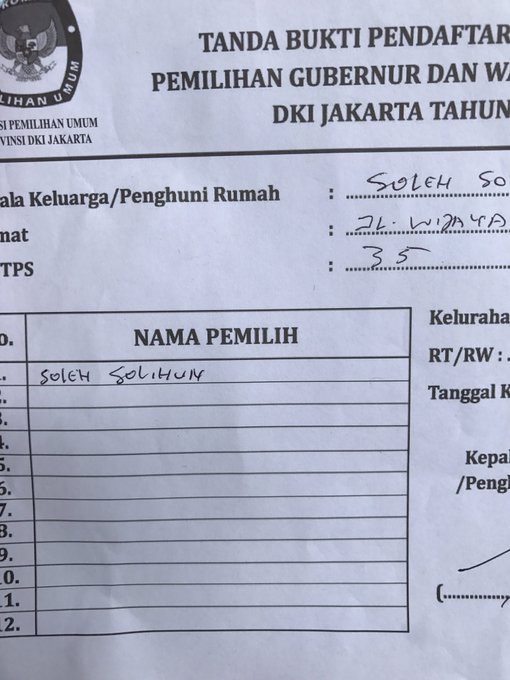 LIHAN UMUM
SI PEMILIHAN UMUM
VINSI DKI JAKARTA
TANDA BUKTI PENDAFTAR
PEMILIHAN GUBERNUR DAN WA
DKI JAKARTA TAHUN
ala Keluarga/Penghuni Rumah : SOLEH SO
mat : JL. WIJAYA
TPS : 35
o. NAMA PEMILIH
1. SOLEH SOLIHUN
2.
3.
4.
5.
6.
7.
8.
9.
10.
11.
12.
Keluraha
RT/RW :
Tanggal K
Kepal
/Pengh
(